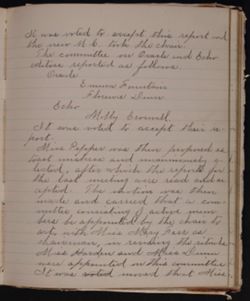 It was voted to accept this report and
the new M. C. took the chair.
The committee on Oracle and Echo
editors reported as follows.
Oracle
Emma Fountain
Florence Dunn
Echo
Molly Criswell.
It was voted to accept their re-
port.
Miss Pepper was then proposed as
toast mistress and unanimously e-
lected, after which the reports for
the last meeting were read and ac-
cepted. The motion was then
made and carried that a com-
mittee consisting of active mem-
bers be appointed by the chair to
act, with Miss Mary Farr as
chairman, in revising the
Miss Harden and Miss Dunn
were appointed on this committee.
It was voted moved that Miss